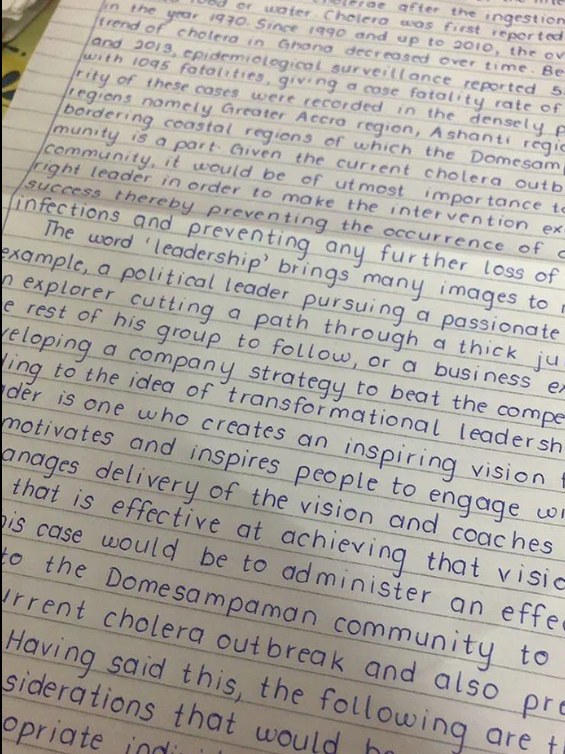 or water. Cholera was first reported
in the year 1970. Since 1990 and up to 2010, the
trend of cholera in Ghana decreased over time.
and 2013, epidemiological surveillance reported
with 1095 fatalities, giving a case fatality rate of
of these cases were recorded in the densely
regions namely Greater Accra region, Ashanti
bordering coastal regions of which the Domesam
munity is a part. Given the current cholera outb
community, it would be of utmost importance to
right leader in order to make the intervention
success thereby preventing the occurrence of
infections and preventing any further loss of
The word 'leadership' brings many images to
example, a political leader pursuing a passionate
explorer cutting a path through a thick ju
rest of his group to follow, or a business
veloping a company strategy to beat the compe
ding to the idea of transformational leadersh
der is one who creates an inspiring vision
motivates and inspires people to engage wi
anages delivery of the vision and coaches
that is effective at achieving that visio
his case would be to administer an effe
to the Domesampaman community to
urrent cholera outbreak and also pre
Having said this, the following are
siderations that would
opriate